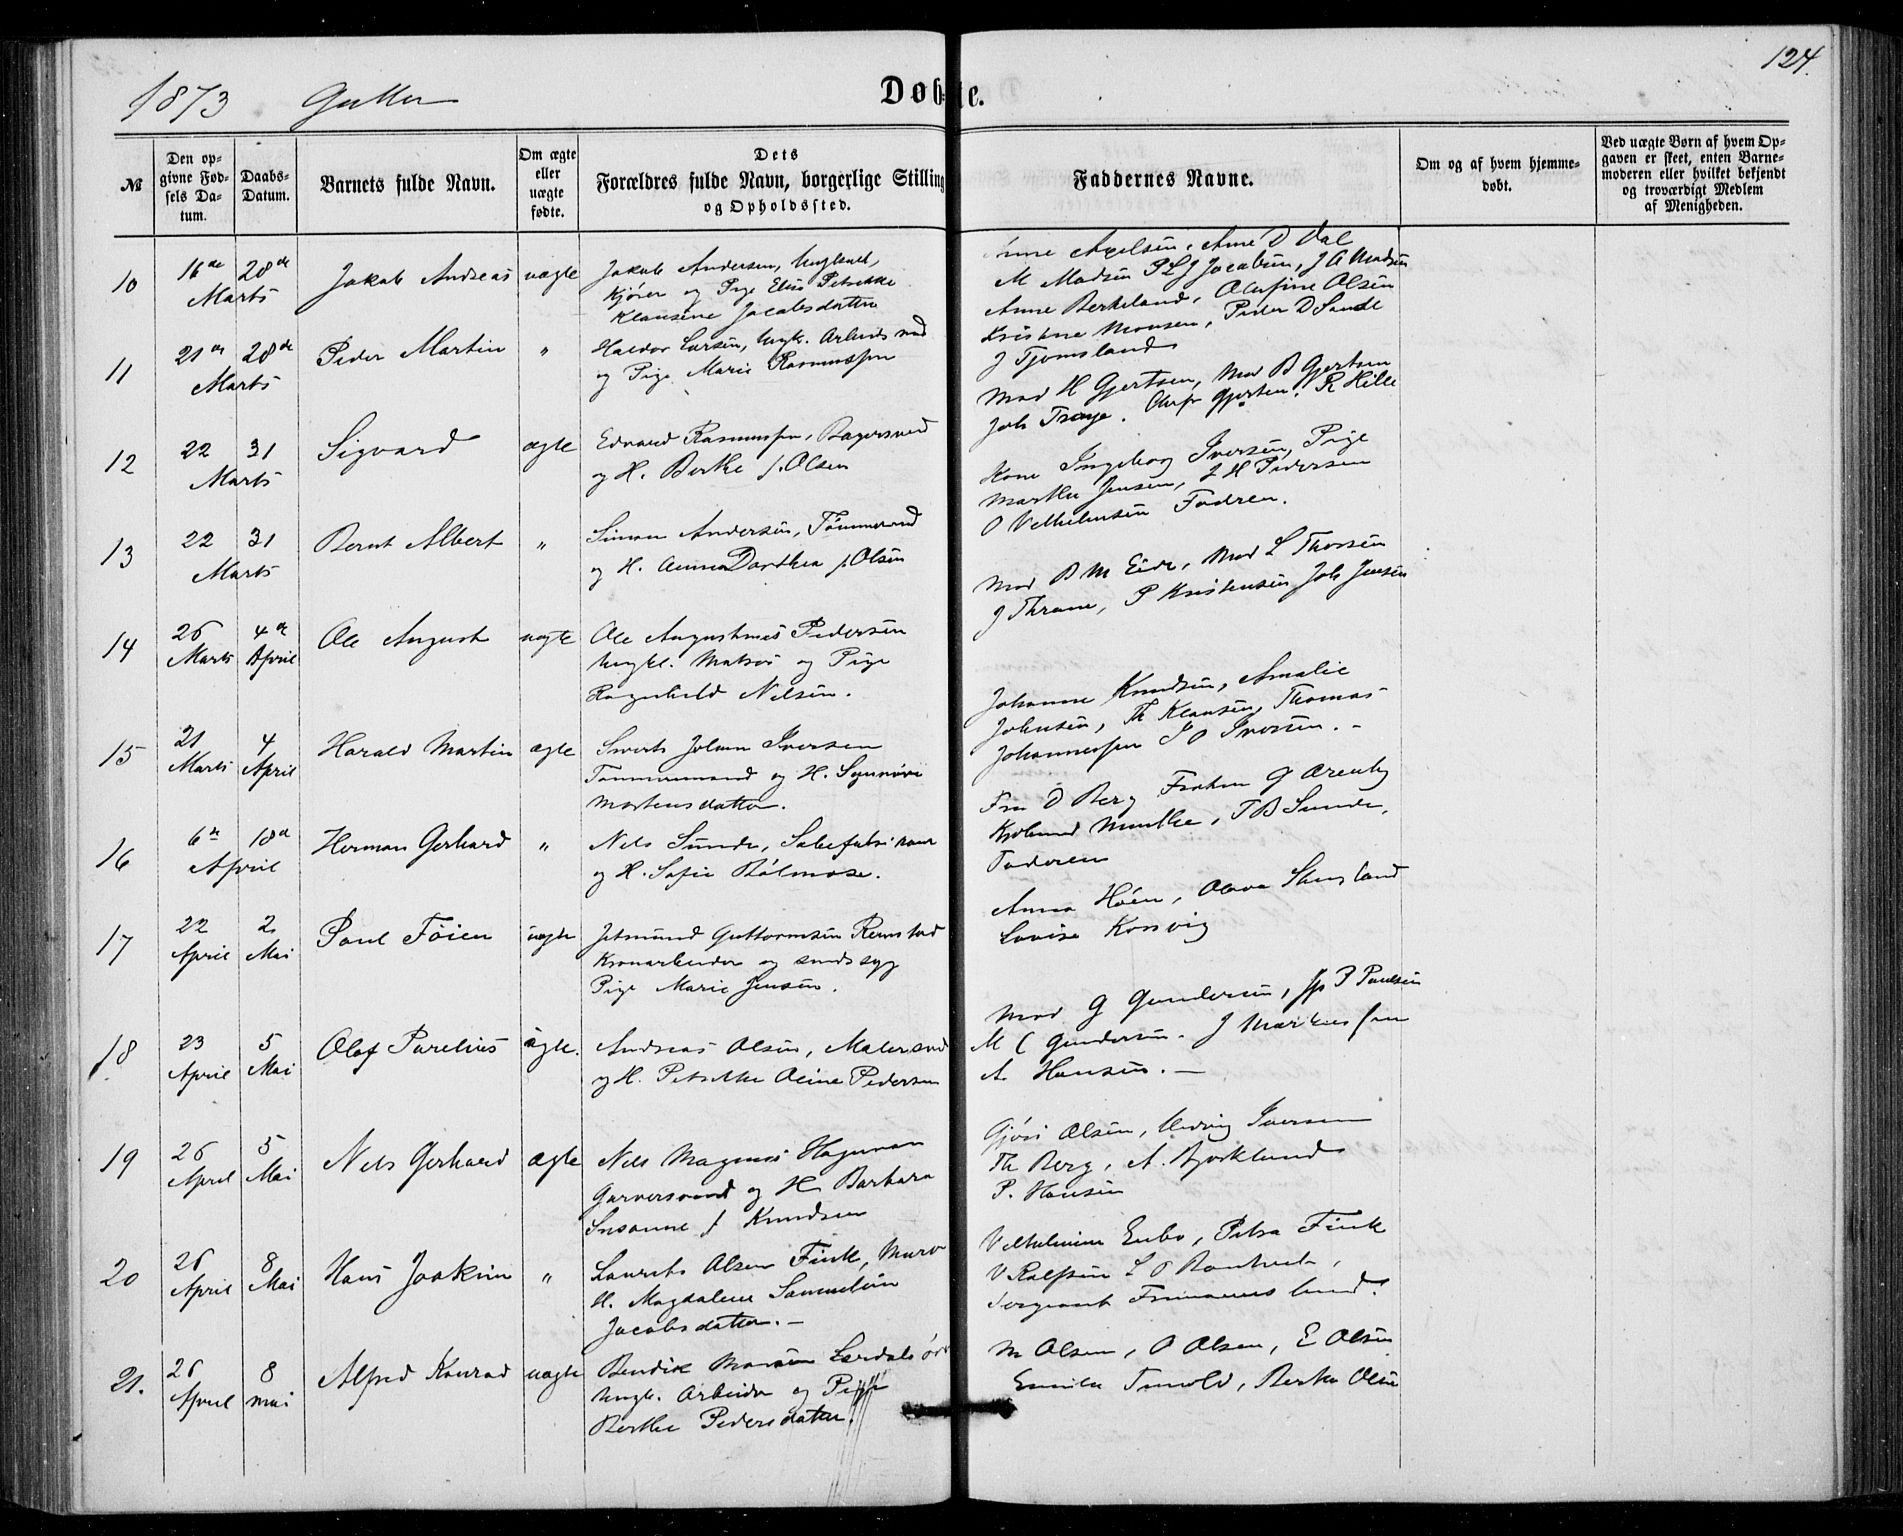 124.
1873 Gutter
Døbte.
№
Den opgivne Fødsels Datum.
Daabs-Datum.
Barnets fulde Navn.
Om ægte eller uægte fødte.
Dets Forældres fulde Navn, borgerlige Stilling og Opholdssted.
Faddernes Navne.
Om og af hvem hjemmedøbt.
Ved uægte Børn af hvem Opgaven er skeet, enten Barnemoderen eller hvilket bekjendt og troværdigt Medlem af Menigheden.
10 16de 28de Marts Jakob Andreas uægte
Jakob Andersen, Ungkarl,
og Pige Elise Petrikke
Klausine Jacobsdatter
Axelsen, Ane D Dal
M Madsen P L J Jacobsen, J A Madsen
11 21de 28de Marts Peder Martin „
Haldor Larsen, Ungk. Arbeidsmd
og Pige Marie Rasmussen
Anne Berkeland, Olufine Olsen
Kristine Monsen, Peder D Sande
J Tjomsland
12 22 31 Marts Sigvard ægte
Edvard Rasmussen, Bagersvend
og H. Berthe f. Olsen
Mad H Gjertsen, Mad B Gjertsen
Joh Traye. Gjertsen. R Hille
13 22 31 Marts Bernt Albert „
Simon Andersen, Tømmermd
og H. Anna Dorthea f. Olsen
Kone Ingeborg Iversen, Pige
Marthe Jensen, L H Pedersen
O Velhelmsen Fadren.
14 26 Marts 4de April Ole August uægte
Ole Augustinus Pedersen
Ungkl. Matros og Pige
Ragnhild Nilsen.
Mad B M Eide, Mad L Thorsen
J Thrane, P Kristensen Joh Jensen
15 21 Marts 4 April Harald Martin ægte
Sivert Johan Iversen
Tømmermand og H. Synnøve
Mortensdatter.
Johanne Knudsen, Amalie
Johnsen, Th Klausen, Thomas
Johannessen I O Iversen. –
16 6te 18de April Herman Gerhard „
Nels Sunde, Sæbefabrikant
og H. Sofie Rølmose.
Fru D Berg Frøken G
Munthe, T B Sunde,
Faderen
17 22 April 2 Mai Poul Föien uægte
Jetmund Guttormsen Remstad
Kronarbeider og sindssyg
Pige Marie Jensen.
Anna Høen, Olava Skugland
Lovise Korsvig
18 23 April 5 Mai Olaf Parelius ægte.
Andreas Olsen, Malersvd
og H. Petrikke Oline Pedersen
Mad G Gundersen, P Poulsen
M C Gundersen. J Markussen
A Hansen. –
19 26 April 5 Mai Nels Gerhard ægte
Nels Magnus Hageman
Garversvend og H Barbara
Susanne f Knudsen
Gjøri Olsen, Hedvig Iversen
Th Berg, A. Bjørklund
P. Hansen
20 26 April 8 Mai Hans Joakim „
Laurits Olsen Fink, Murer
H. Magdalene Samueline
Jacobsdatter. –
Velhelmine Enbo, Petra Fink
V Ralfsen L O
Sergeant lund.
21. 26 April 8 Mai Alfred Konrad uægte
Bendik Monsen Lærdalsør
Ungk. Arbeider og Pige
Berthe Pedersdatter.
M Olsen, O Olsen, E Olsen
Emilie Tuvold, Berthe Olsen